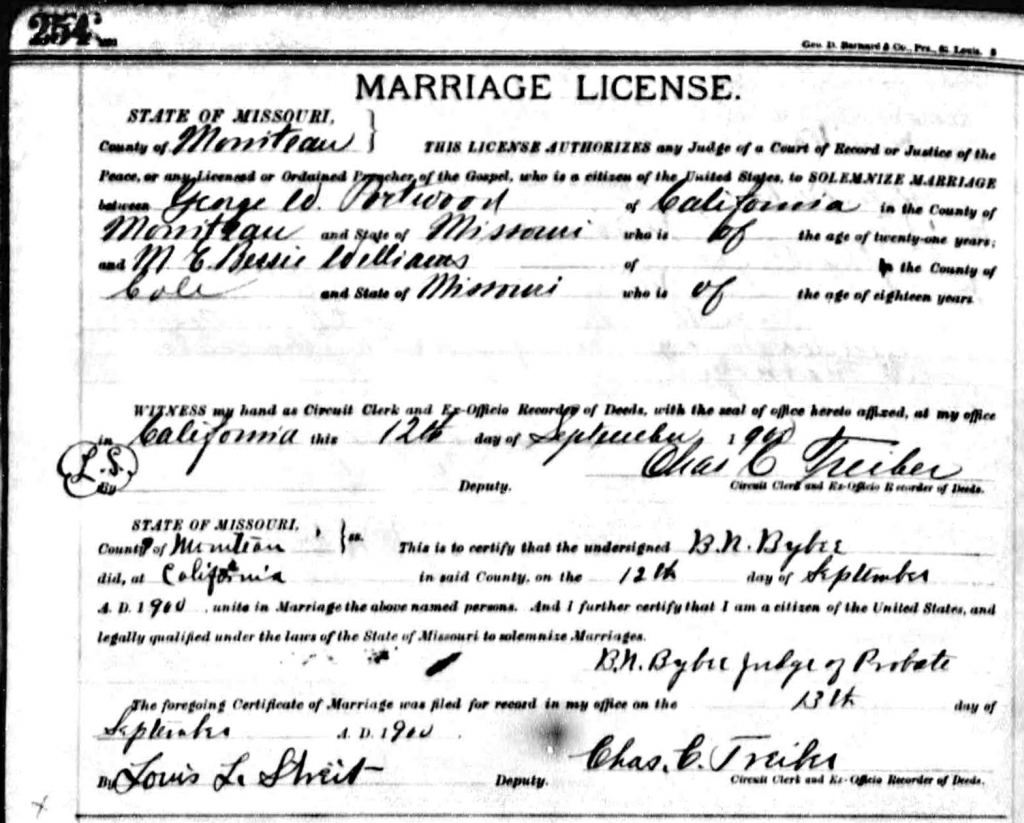 254
Geo. D. Barnard & Co., Prs., St. Louis.
MARRIAGE LICENSE.
STATE OF MISSOURI,
County of Moniteau } THIS LICENSE AUTHORIZES any Judge of a Court of Record or Justice of the
Peace, or any Licensed or Ordained Preacher of the Gospel, who is a citizen of the United States, to SOLEMNIZE MARRIAGE
between George W. Portwood of California in the County of
Moniteau and State of Missouri who is of the age of twenty-one years;
and M E Bessie Williams of in the County of
Cole and State of Missouri who is of the age of eighteen years
WITNESS my hand as Circuit Clerk and Ex-Officio Recorder of Deeds, with the seal of office hereto affixed, at my office
in California this 12th day of September, 1900
L.S. Chas C Treiber
By Deputy. Circuit Clerk and Ex-Officio Recorder of Deeds.
STATE OF MISSOURI,
County of Moniteau } ss. This is to certify that the undersigned B.N. Bybee
did, at California in said County, on the 12th day of September
A. D. 1900, unite in Marriage the above named persons. And I further certify that I am a citizen of the United States, and
legally qualified under the laws of the State of Missouri to solemnize Marriages.
B.N. Bybee Judge of Probate
The foregoing Certificate of Marriage was filed for record in my office on the 13th day of
September A. D. 1900.
Chas. C. Treiber
By Louis L. Streit Deputy. Circuit Clerk and Ex-Officio Recorder of Deeds.